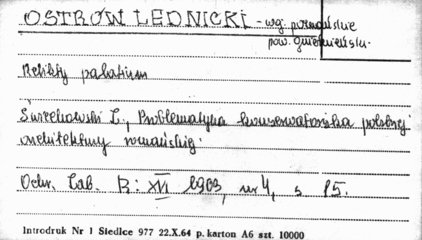 OSTRÓW LEDNICKI - wg. poznańskie
pow. gnieźnieński.
Relikty palatium
Świechowski Z., Problematyka konserwatorska polskiej
architektury romańskiej.
Ochr. Zab. R: XVI 1963, nr 4, s 15.
Introdruk Nr 1 Siedlce 977 22.X.64 p. karton A6 szt. 10000